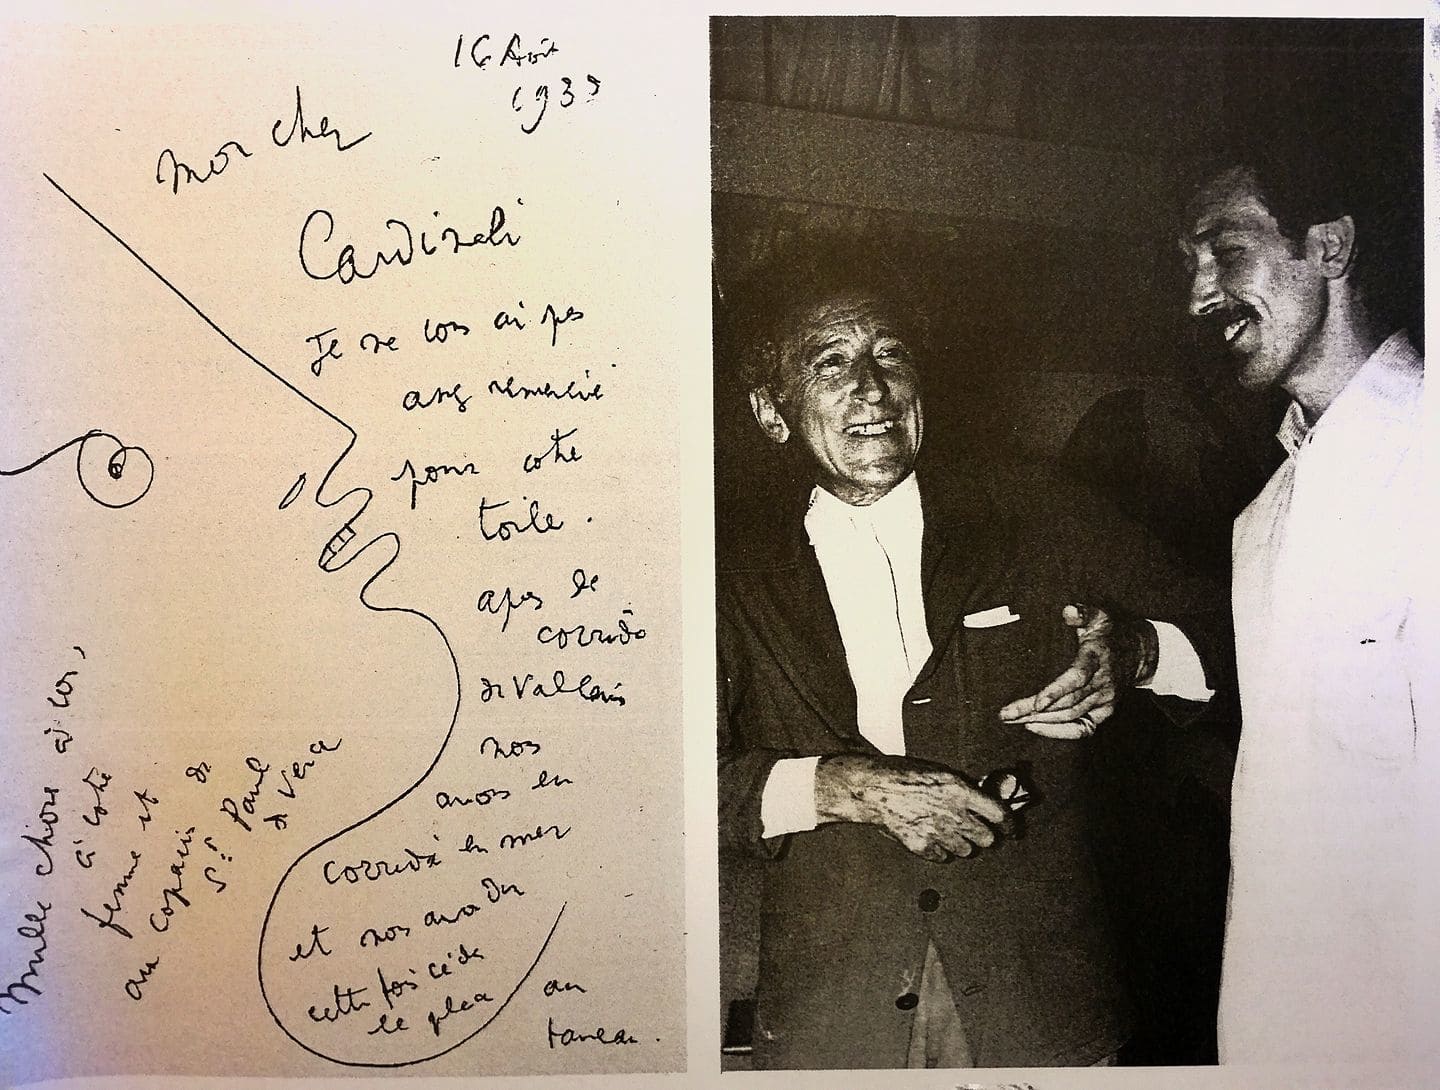 16 Août
1939
Mon cher
Cardinali
Je ne vous ai pas
assez remercié
pour votre
toile.
après la
corrida
de Vallauris
nous
avons eu
corrida en mer
et nous avons dû
cette fois céder
la place
au
taureau.
Mille choses à vous,
à votre
femme et
au copains de
St Paul
de Vence